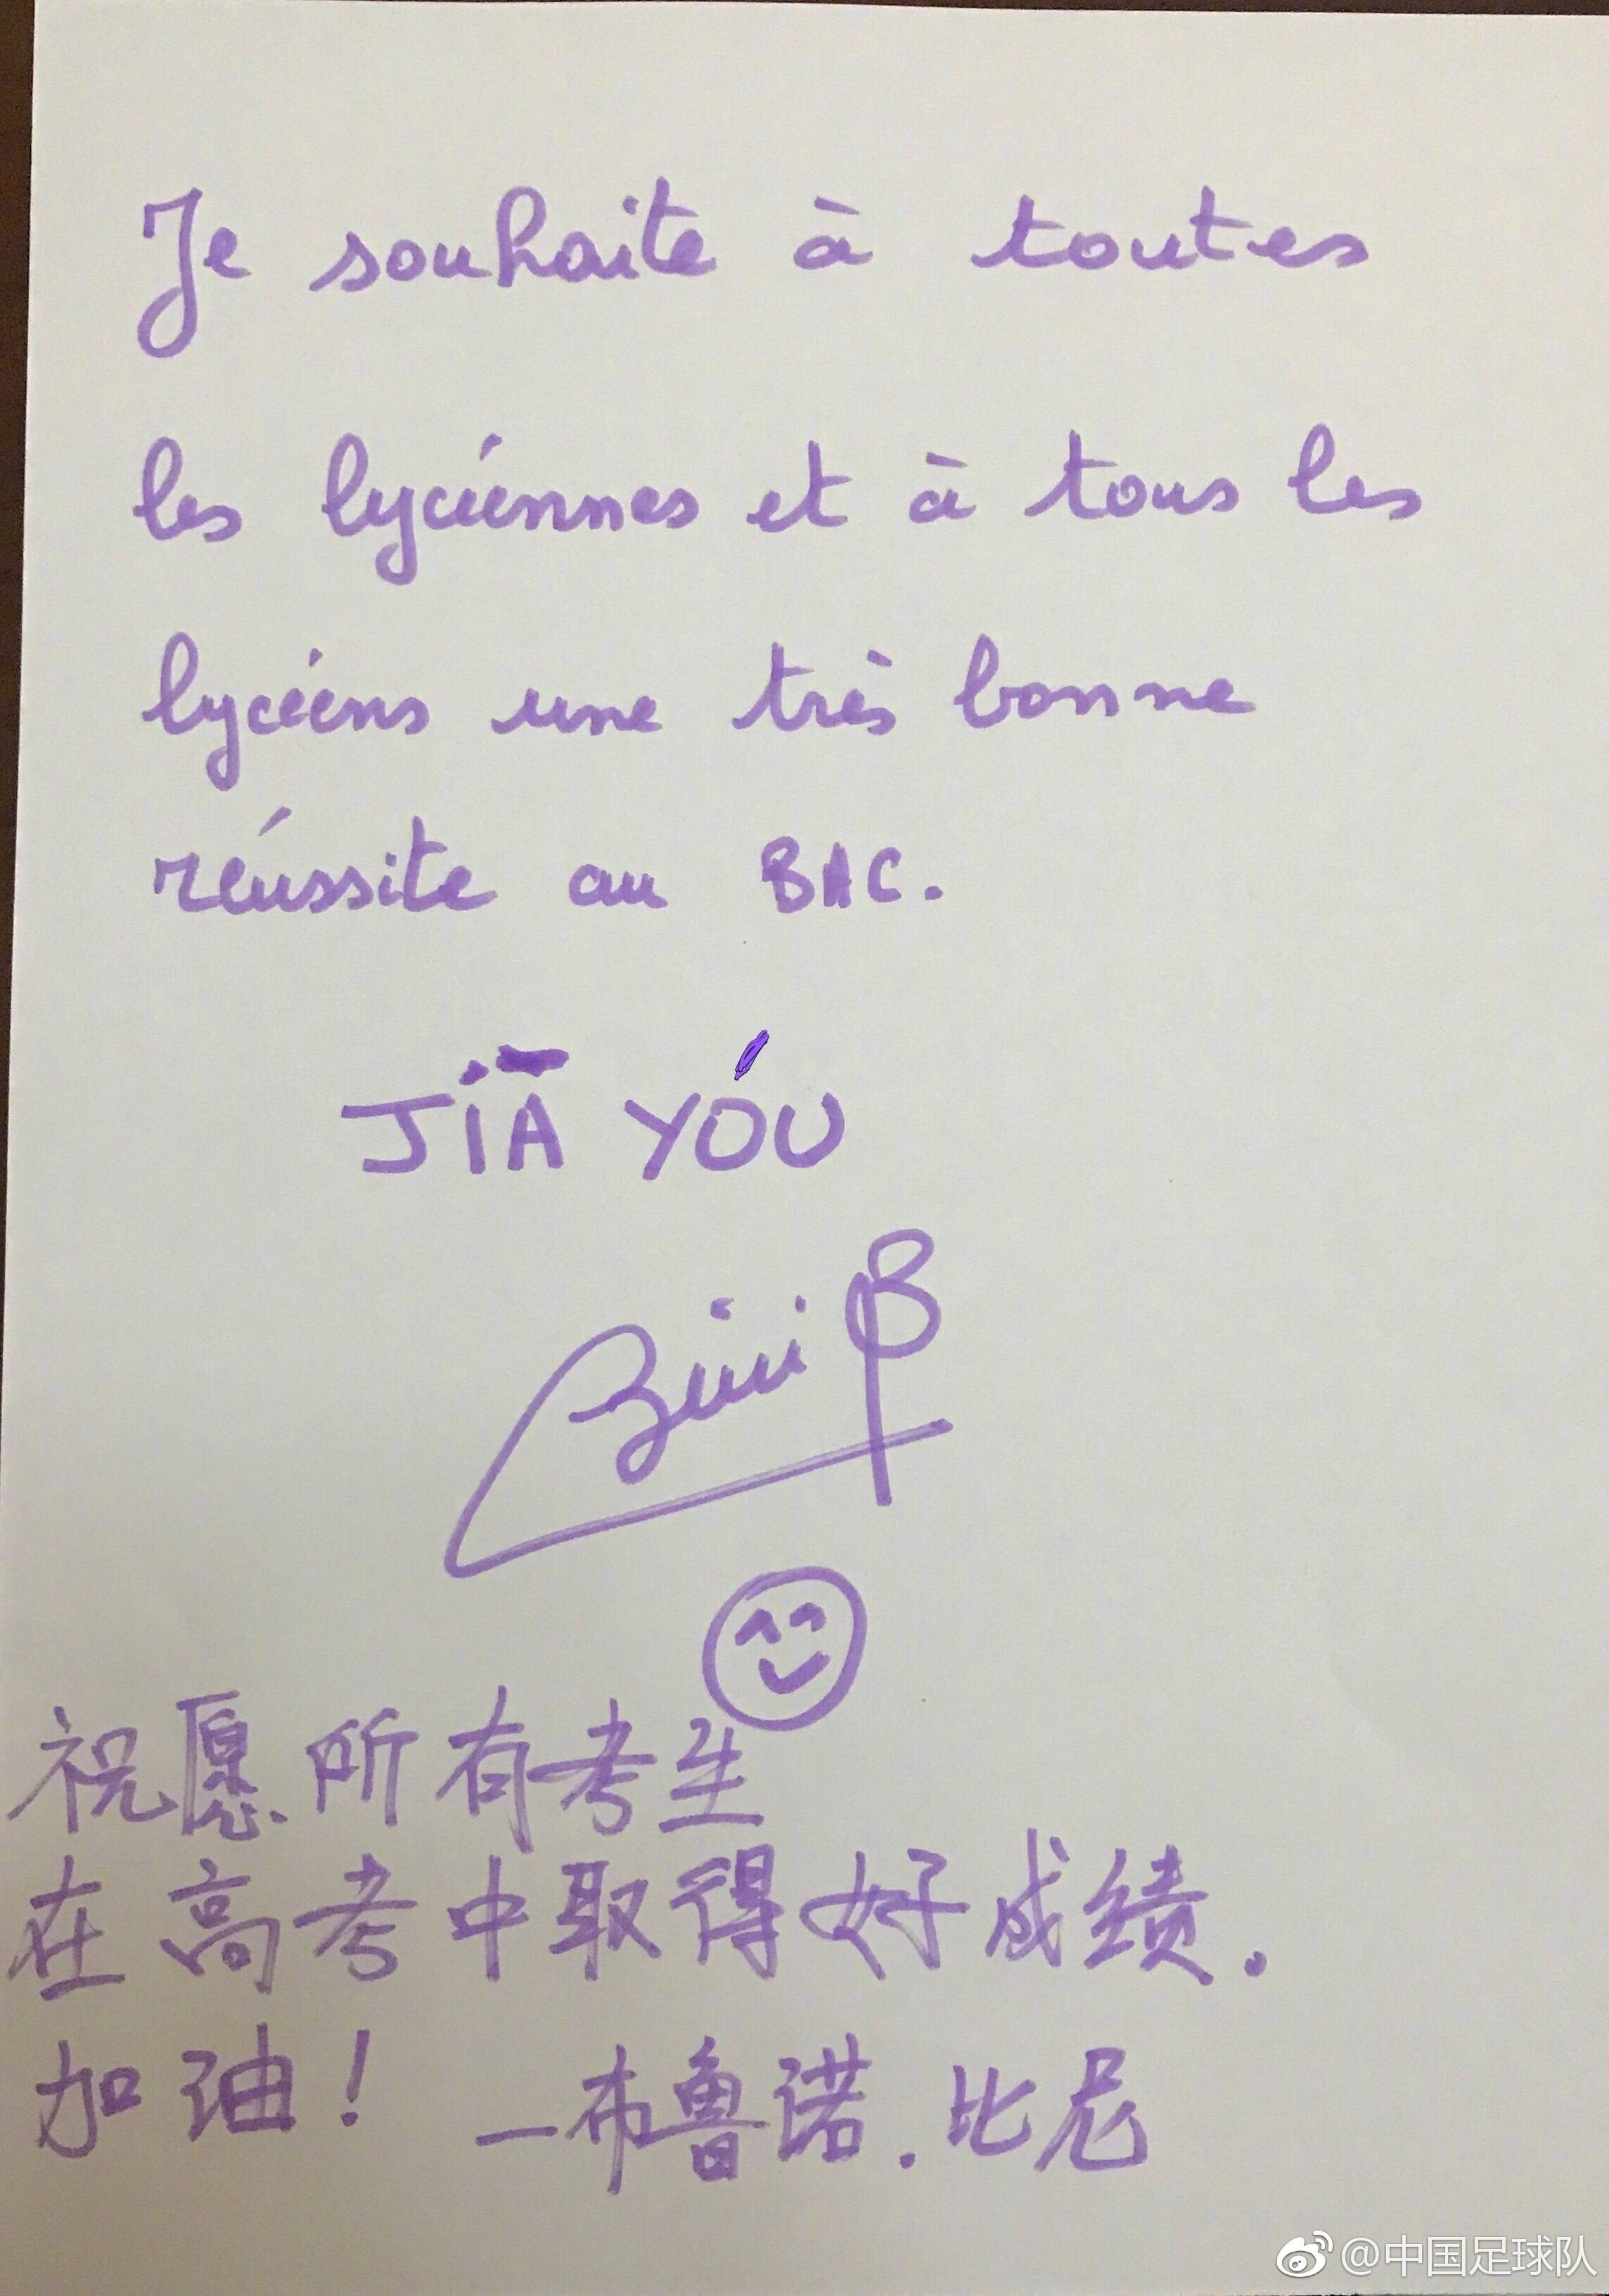 Je souhaite à toutes
les lycéennes et à tous les
lycéens une très bonne
réussite au BAC.
JIĀ YÓU
Bini B
祝愿所有考生
在高考中取得好成绩.
加油! —布鲁诺.比尼
@中国足球队